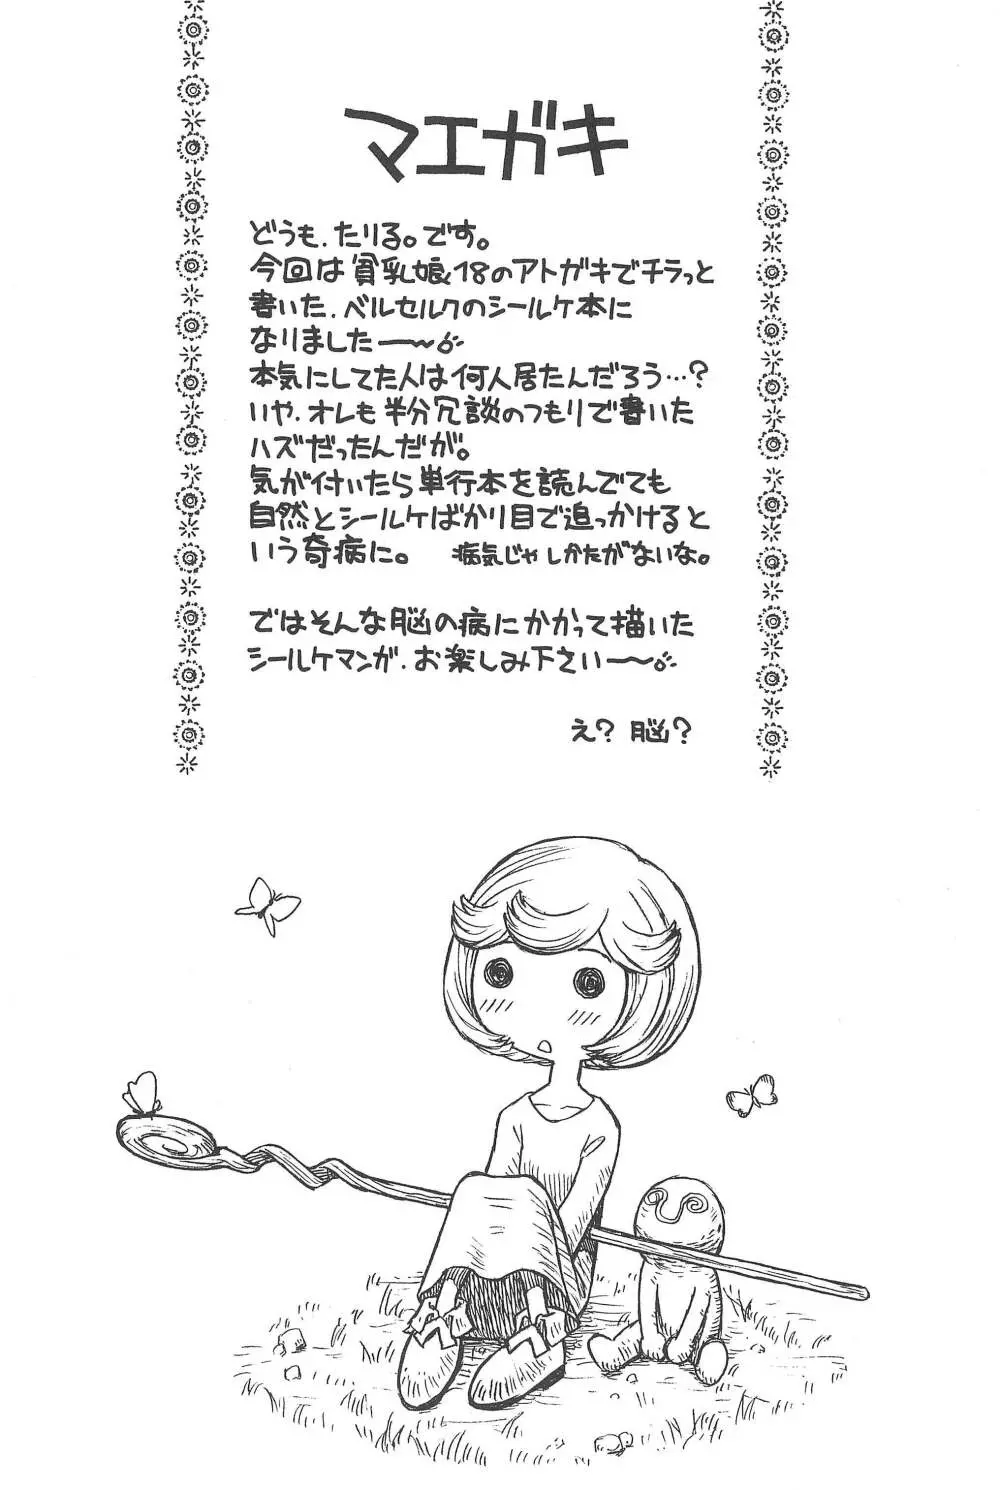 マエガキ
どうも、たりる。です。
今回は貧乳娘18のアトガキでチラっと
書いた、ベルセルクのシールケ本に
なりましたー〜
本気にしてた人は何人居たんだろう…?
いや、オレも半分冗談のつもりで書いた
ハズだったんだが。
気が付いたら単行本を読んでても
自然とシールケばかり目で追っかけると
いう奇病に。 病気じゃしかたがないな。
ではそんな脳の病にかかって描いた
シールケマンガ、お楽しみ下さいー〜
え? 脳?